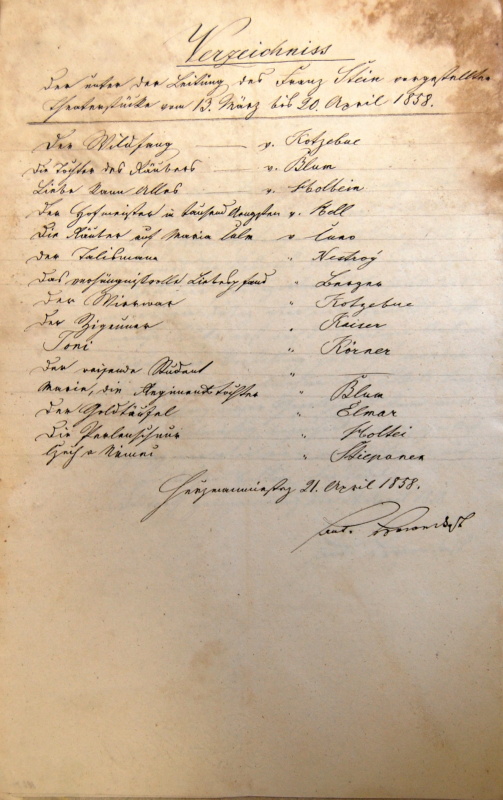 Verzeichniss
der unter der Leitung des Franz Stein vorgestellten
Theaterstücke vom 13. März bis 20. April 1858.
Der Wildfang — v. Kotzebue
Die Tochter des Räubers — v. Blum
Liebe kann Alles — v. Holbein
Der Hofmeister in tausend Aengsten v. Hell
Die Räuber auf Maria Culm v Cuno
Der Talisman " Nestroy
Das verhängnißvolle " Berger
Der Wirrwar " Kotzebue
Der Zigeuner " Kaiser
Toni " Körner
Der reisende Student " —
Marie, die Regimentstochter " Blum
Der Goldteufel " Elmar
Die Perlenschnur " Holtei
Čech a Němec " Štiepanek
21. April 1858.